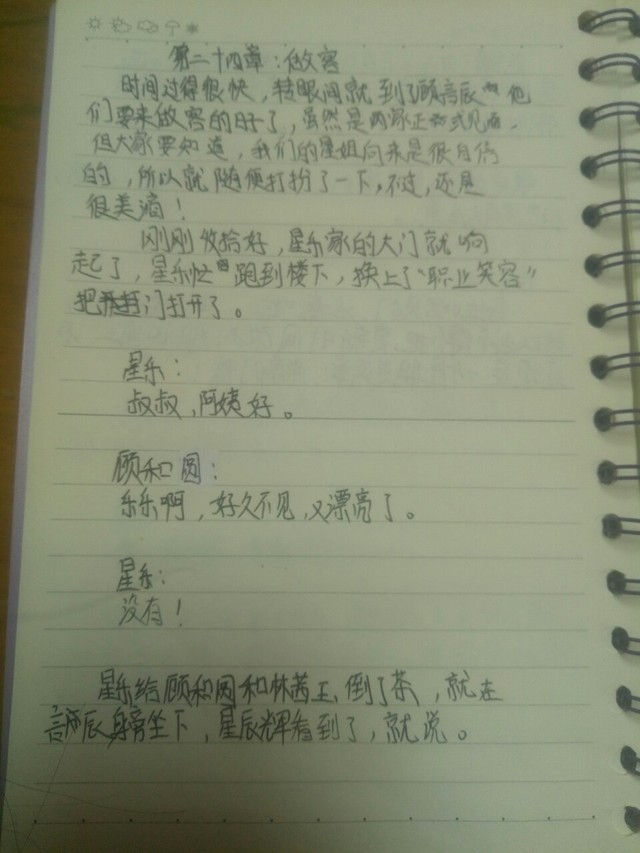 第二十四章：做客
时间过得很快，转眼间就到了顾言辰他
们要来做客的日子了，虽然是两家正式见面，
但大家要知道，我们的星姐向来是很自信
的，所以就随便打扮了一下，不过，还是
很美滴！
刚刚收拾好，星乐家的大门就响
起了，星乐忙跑到楼下，换上了“职业笑容”
把门打开了。
星乐：
叔叔，阿姨好。
顾和圆：
乐乐啊，好久不见，又漂亮了。
星乐：
没有！
星乐给顾和圆和林茜玉倒了茶，就在
言辰身旁坐下，星辰辉看到了，就说。